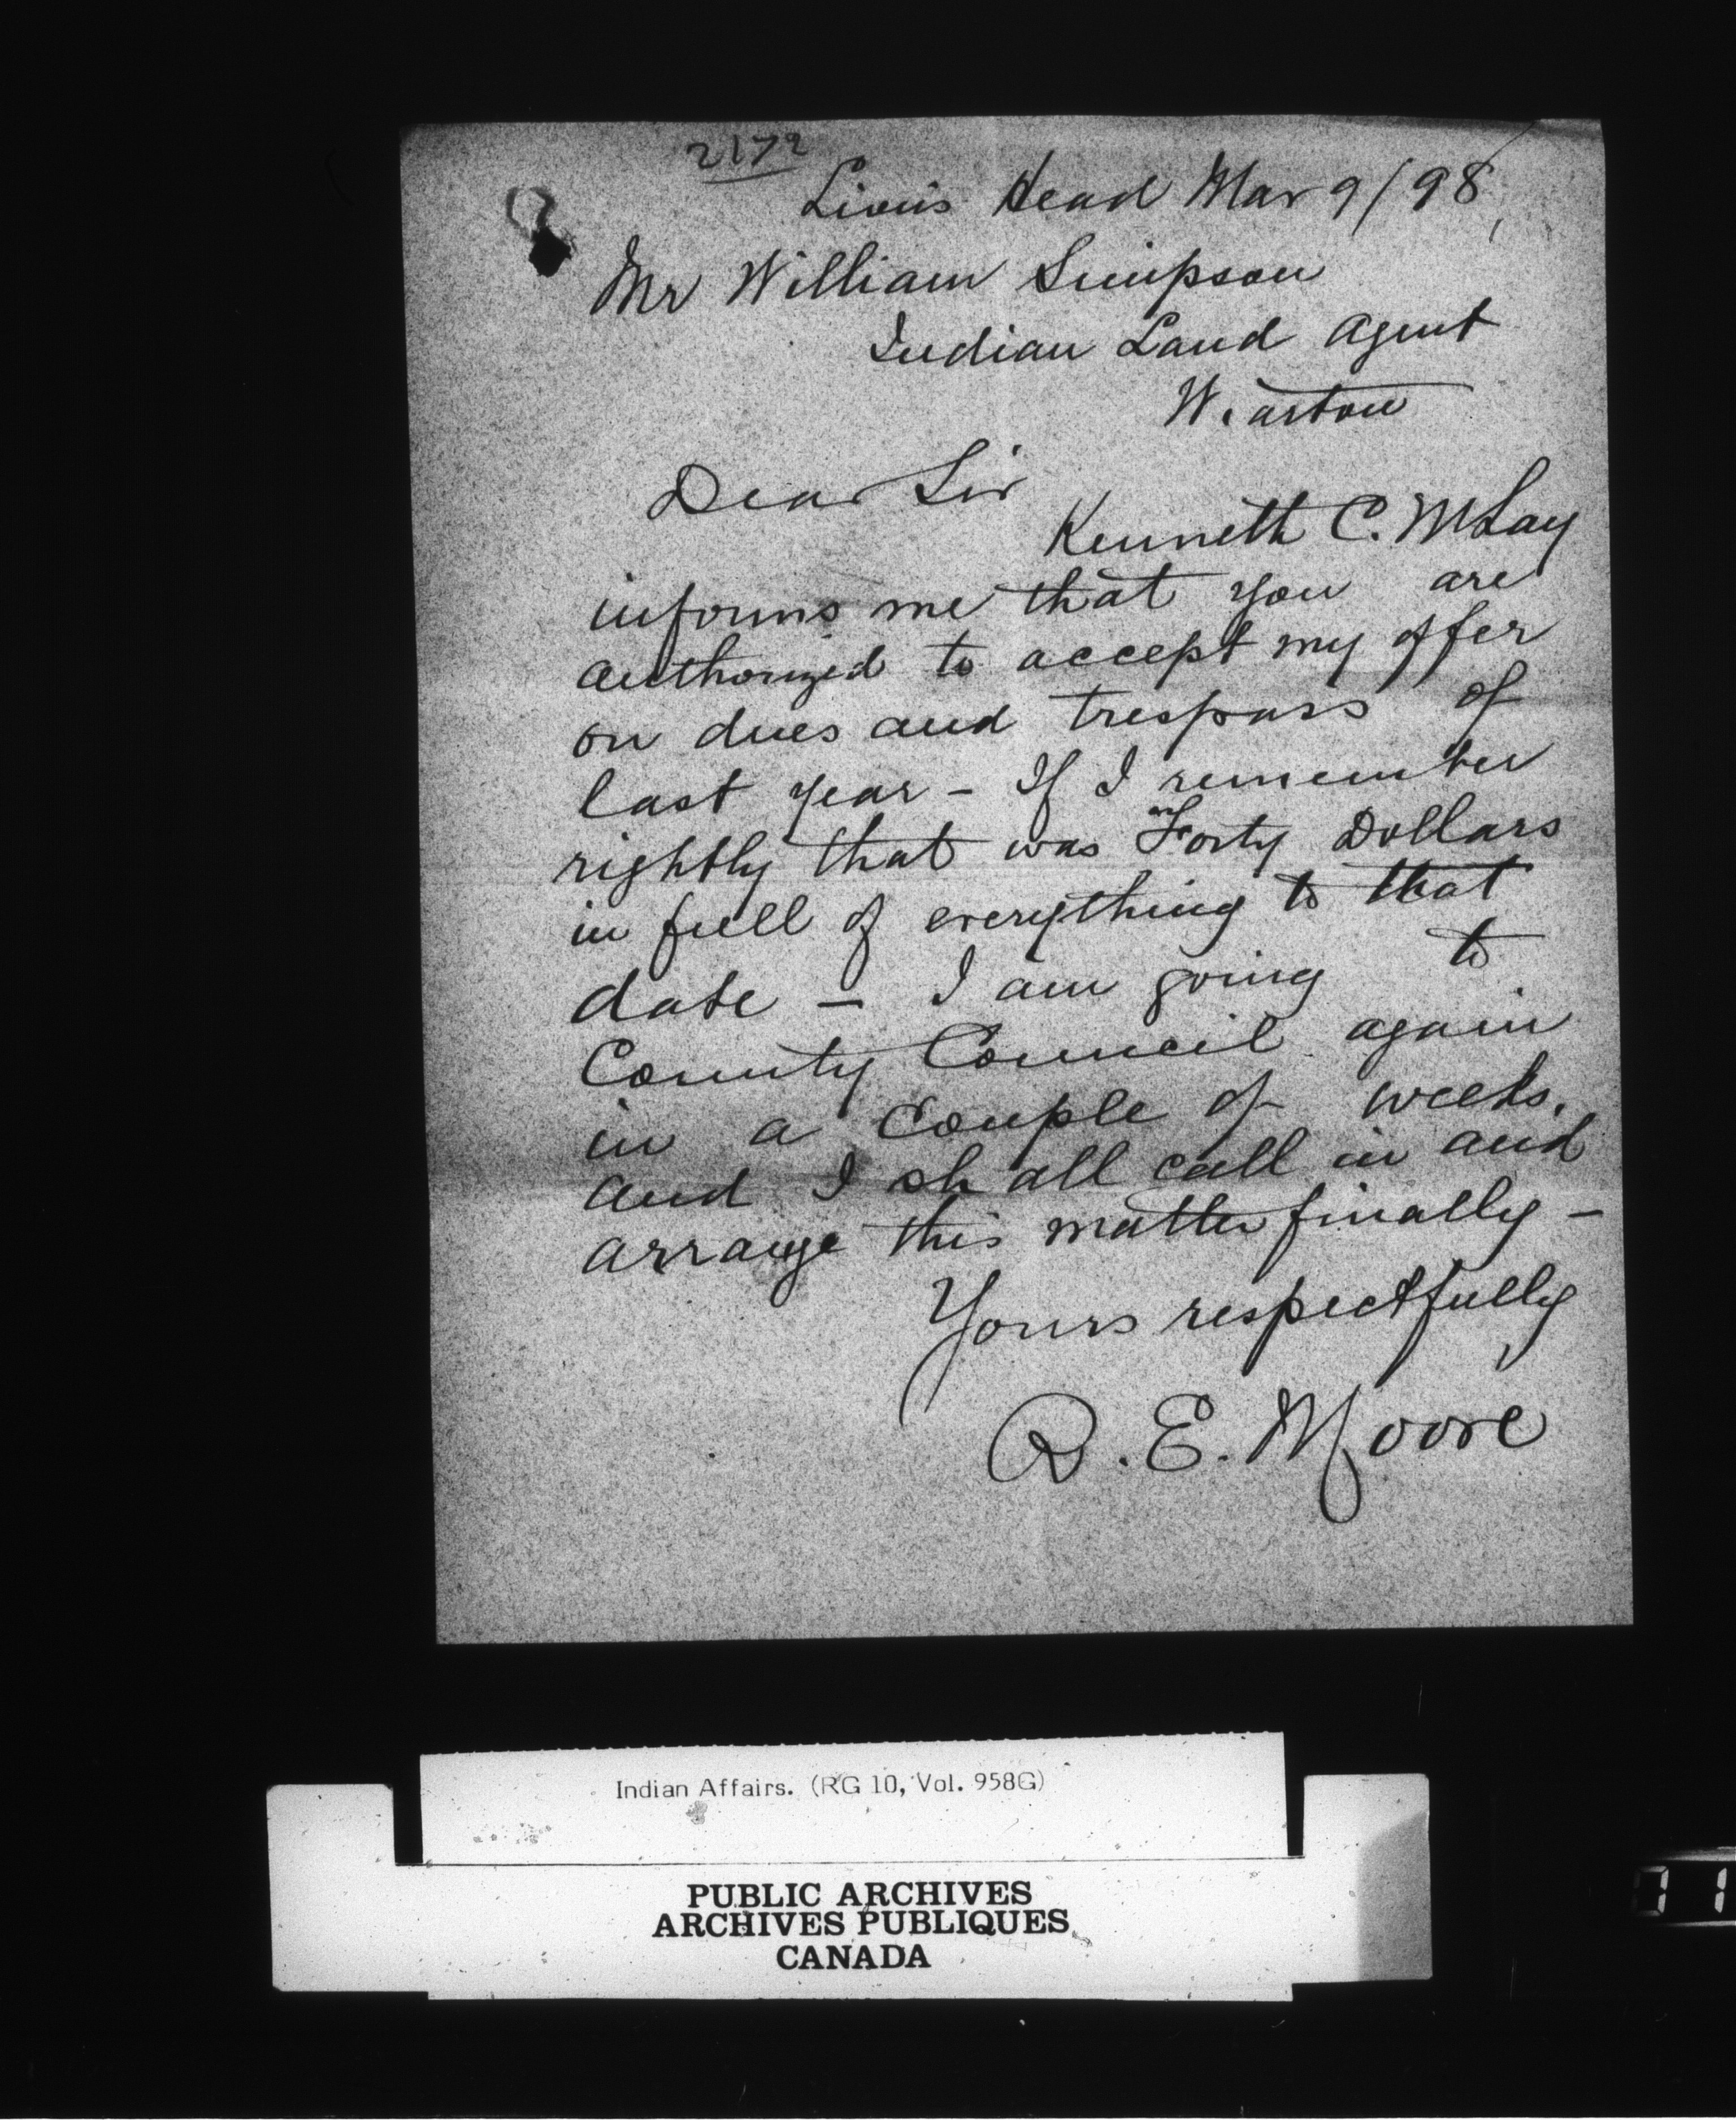 2172
Lion's Head Mar 9/98
Mr William Simpson
Indian Land Agent
Wiarton
Dear Sir
Kenneth C. McLay
informs me that you are
authorized to accept my offer
on dues and trespass of
last year - If I remember
rightly that was Forty Dollars
in full of everything to that
date - I am going to
County Council again
in a couple of weeks.
and I shall call in and
arrange this matter finally -
Yours respectfully
R. E. Moore
Indian Affairs. (RG 10, Vol. 958G)
PUBLIC ARCHIVES
ARCHIVES PUBLIQUES
CANADA